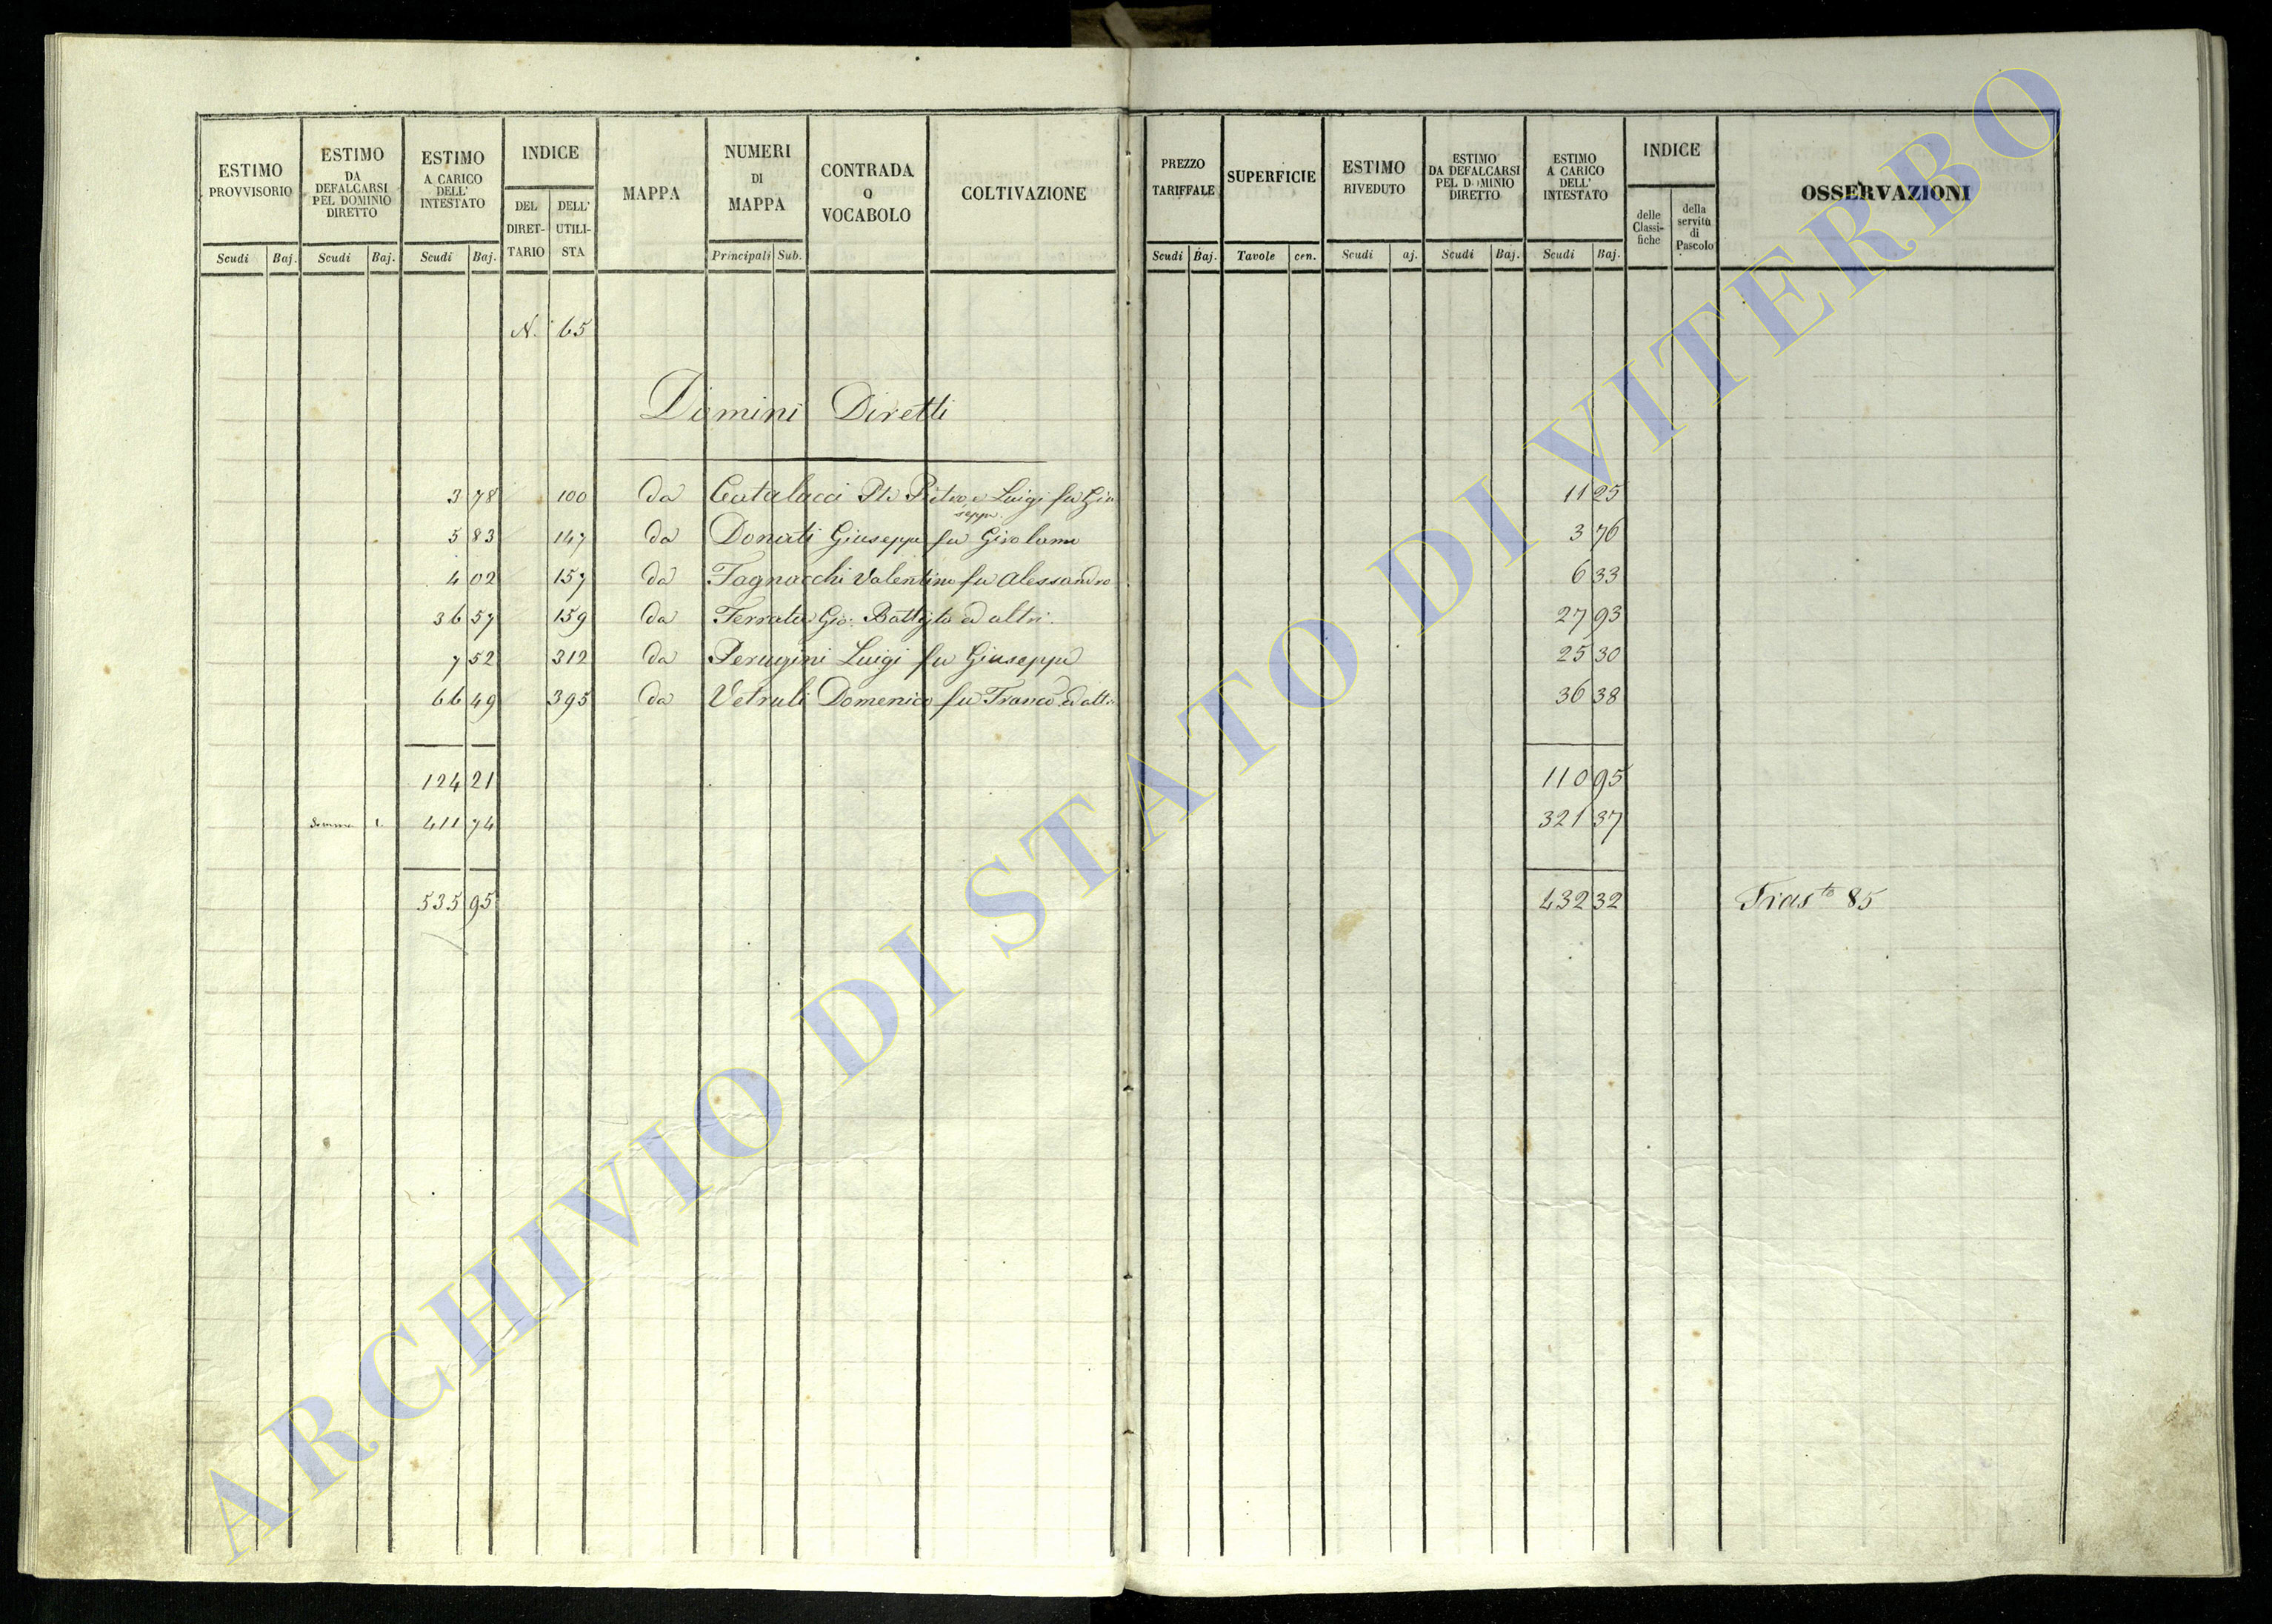 ESTIMO PROVVISORIO
Scudi Baj.
ESTIMO DA DEFALCARSI PEL DOMINIO DIRETTO
Scudi Baj.
ESTIMO A CARICO DELL' INTESTATO
Scudi Baj.
INDICE
DEL DIRET-TARIO
DELL' UTILI-STA
MAPPA
NUMERI DI MAPPA
Principali Sub.
CONTRADA O VOCABOLO
COLTIVAZIONE
PREZZO TARIFFALE
Scudi Baj.
SUPERFICIE
Tavole cen.
ESTIMO RIVEDUTO
Scudi aj.
ESTIMO DA DEFALCARSI PEL DOMINIO DIRETTO
Scudi Baj.
ESTIMO A CARICO DELL' INTESTATO
Scudi Baj.
INDICE
delle Classi-fiche
della servitù di Pascolo
OSSERVAZIONI
N. 65
Domini Diretti
3 78 100 da Catalacci Pietro e Luigi fu Gio 11 25
seppe.
5 83 147 da Donati Giuseppe fu Girolamo 3 76
4 02 157 da Fagnocchi Valentino fu Alessandro 6 33
36 57 159 da Ferrata Gio: Battista ed altri 27 93
7 52 312 da Perugini Luigi fu Giuseppe 25 30
66 49 395 da Vetruli Domenico fu Franco ed altri 36 38
124 21 110 95
Somma 411 74 321 37
535 95 432 32 Trasto 85
ARCHIVIO DI STATO DI VITERBO